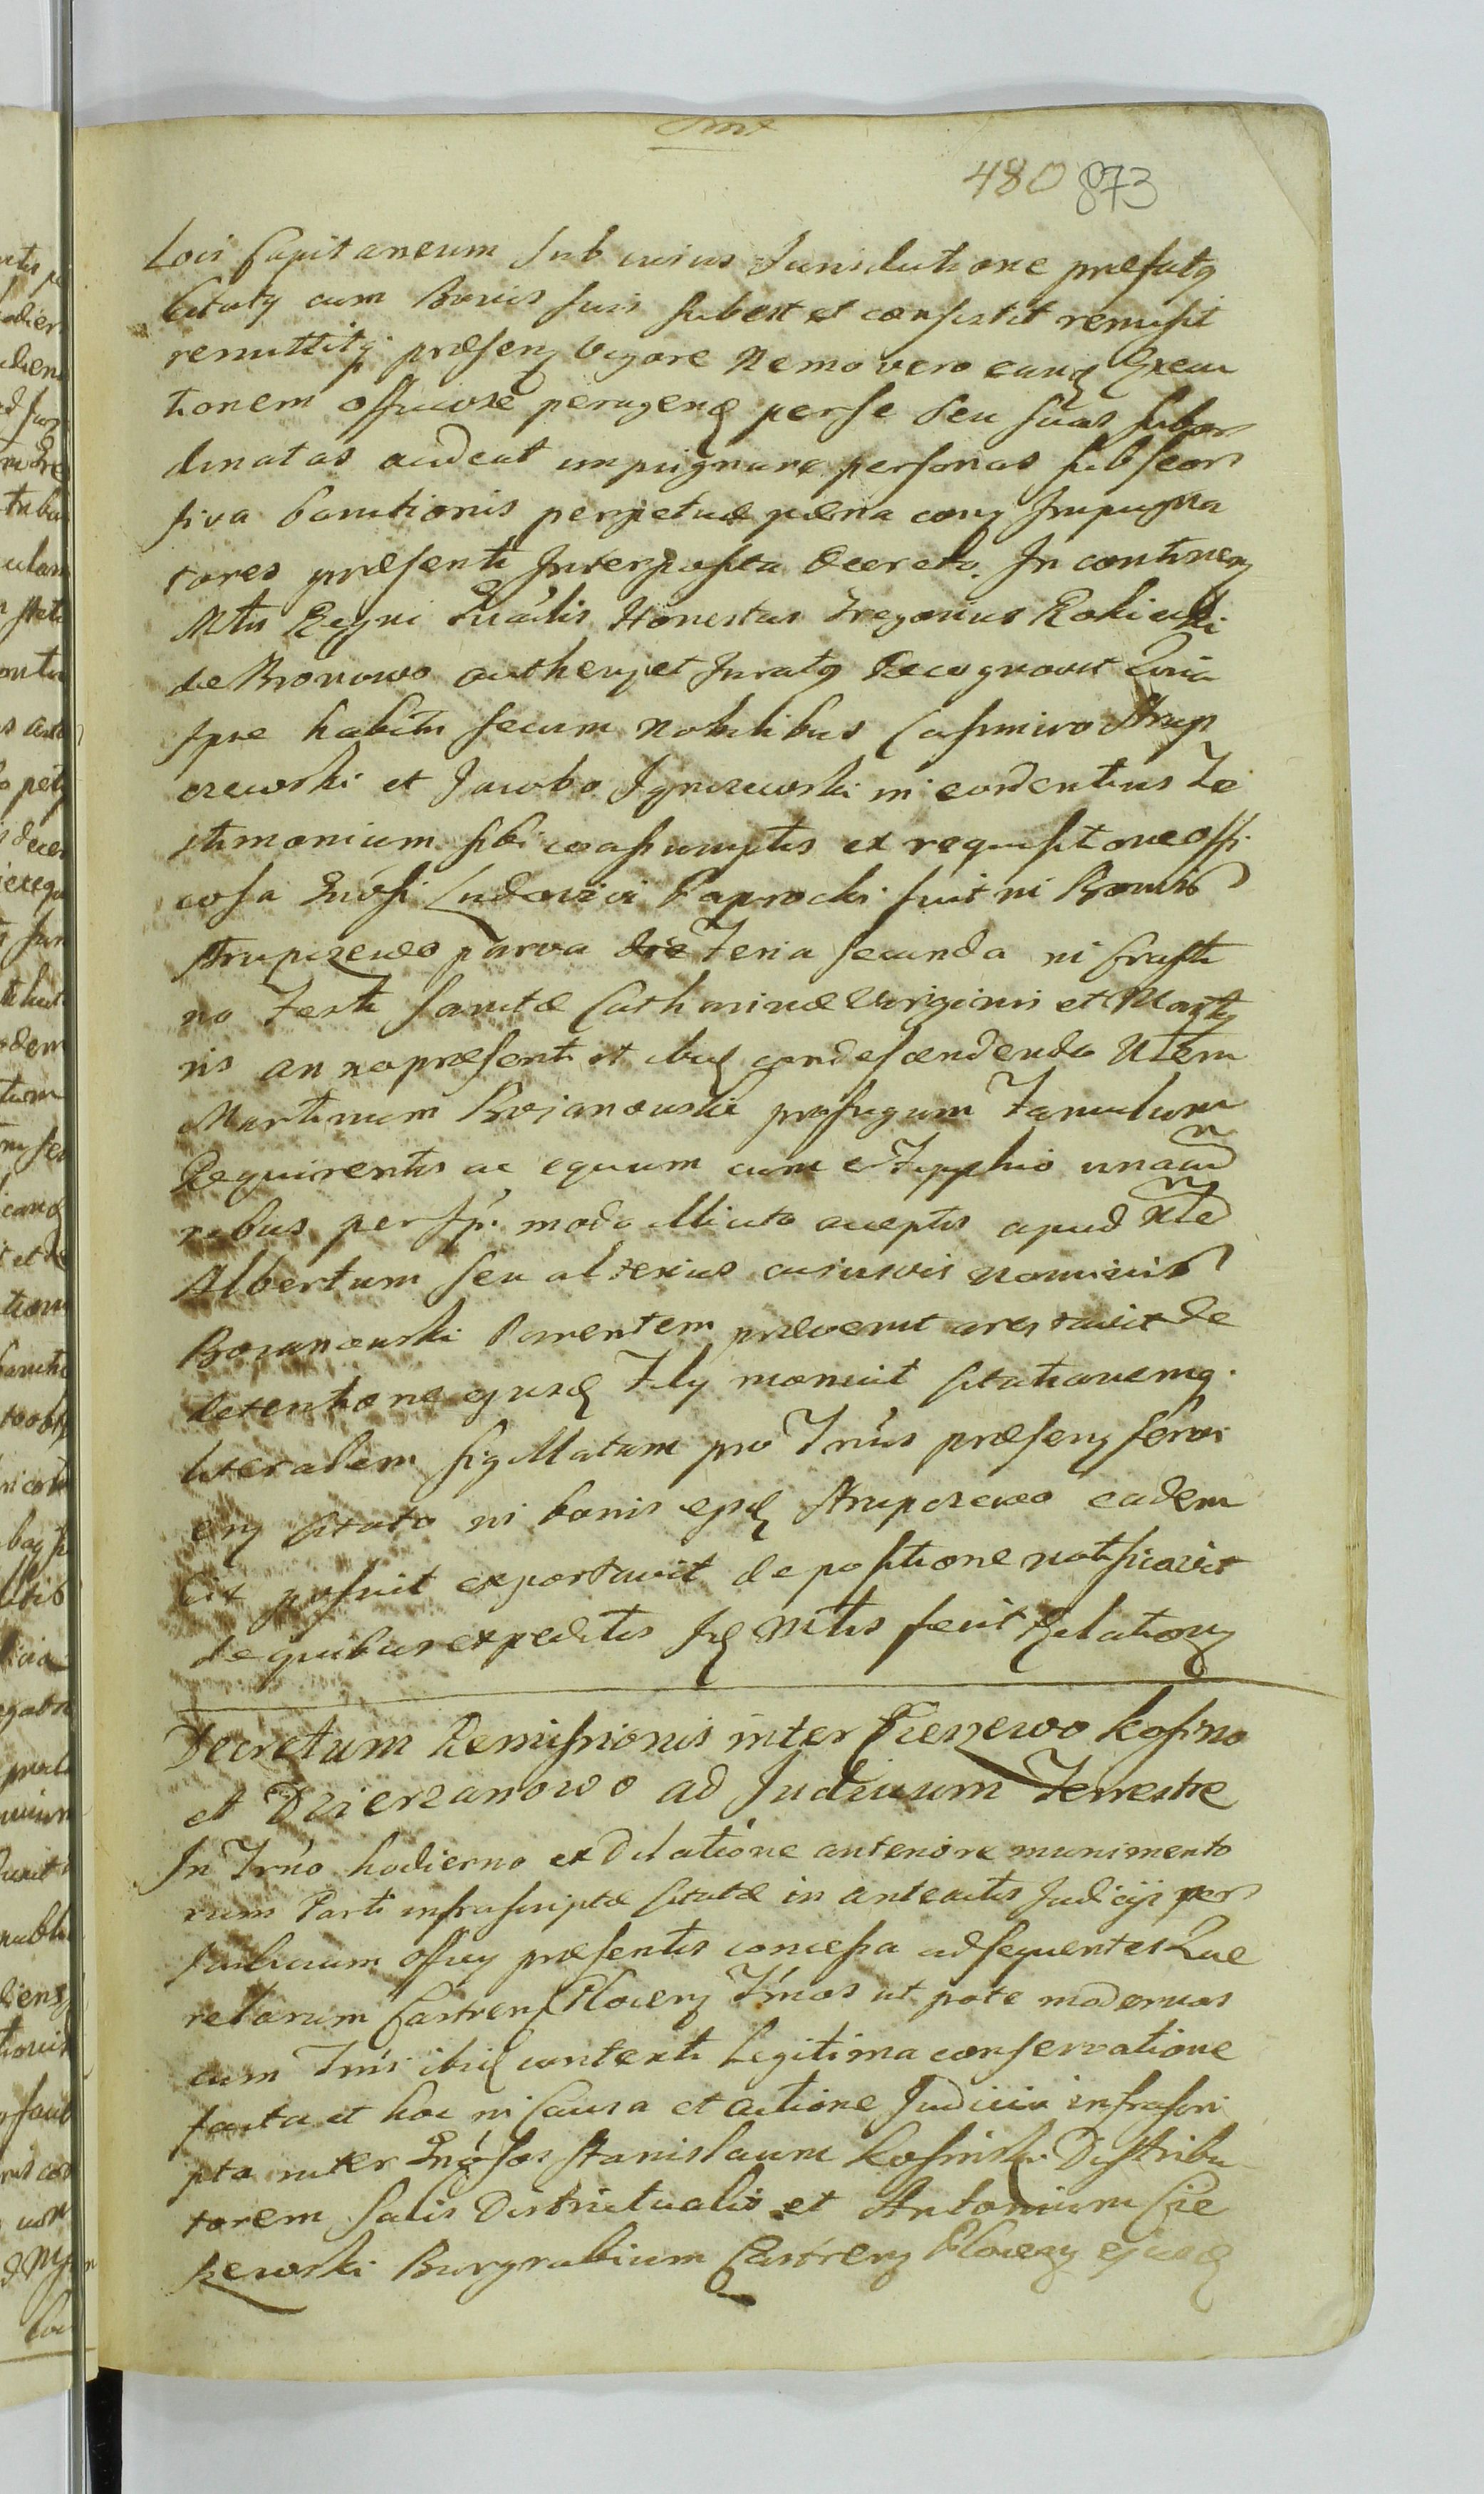 480 873
Loci Capitaneum sub cuius Jurisdictione præfatq
Citatq cum Bonis suis subest et consistit remisit
remittitq præseng vigore Nemo vero eandς Execu
tionem officiose peragendς per se seu suas subor
dinatas audeat impugnare personas sub seor
siva bannitionis perpetuæ pœna cong Impugna
tores præsenti Interposita decreto. In contineng
Mtris Regni Gnâlis Honestus Gregorius Rokicki
de Bronowo autheng et Juratq Recognovit Quia
Ipse habitis secum Nobilibus Casimiro Strup
czewski et Jacobo
stimonium sibi coassumptis ex requisitione offi
cosa Gnôsi Ludovici Paprocki fuit in Bonis
Strupczewo parva Feria secunda in Crasti
no Festi Sanctæ Catharinæ Virginis et Marty
ris anno præsenti et ibidς condescendendo Nlem
Martinum Bojanowski profugum Famulum
Requirentis ac equum cum Ephippio unacũ
rebus per Ip. modo illicito acceptis apud Nlẽ
Albertum seu alterius cuiusvis nominis
Bojanowski Parentem prævenit arestavit de
detentione ejusdς Filij monuit Citationemq.
literalem sigillatam pro Trn̂is præseng servi
eng Citato in bonis ejsdς Strupczewo eadem
Die posuit exportavit de positione notificavit
de quibus expeditis Idς Mtris fecit Relationg
Decretum Remissionis inter Cieszewo Kosino
et Dzierzanowo ad Judicium Terrestre
In Trn̂o hodierno ex Dilatione anteriore munimento
rum Parti infrascriptæ Citatæ in anteactis Judicijs per
Judicium officij præsentis concessa adsequentes Que
relarum Castreng Ploceng Trm̂os ut pote modernos
cum Trn̂is ibidς contexti Legitima conservatione
facta et hoc in Causa et actione Judicio infrascri
pta inter Gnôsos Stanislaum Kosinski Distribu
torem Salis Districtualis et Antonium Cie
szewski Burgrabium Castreng Ploceng ejusdς